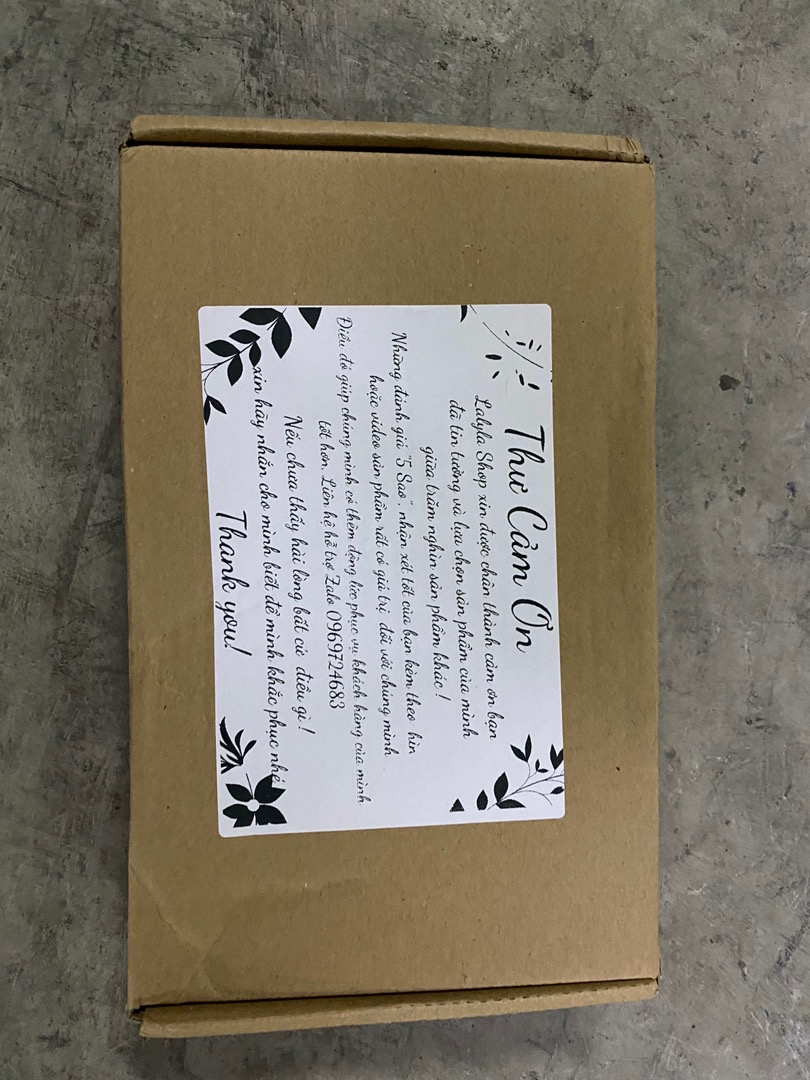 Thư Cảm Ơn
Lalyla Shop xin được chân thành cảm ơn bạn
đã tin tưởng và lựa chọn sản phẩm của mình
giữa trăm nghìn sản phẩm khác !
Những đánh giá "5 Sao", nhận xét tốt của bạn kèm theo hìn
hoặc video sản phẩm rất có giá trị đối với chúng mình
Điều đó giúp chúng mình có thêm động lực phục vụ khách hàng của mình
tốt hơn. Liên hệ hỗ trợ Zalo 0969724683
Nếu chưa thấy hài lòng bất cứ điều gì !
xin hãy nhắn cho mình biết để mình khắc phục nhé
Thank you!